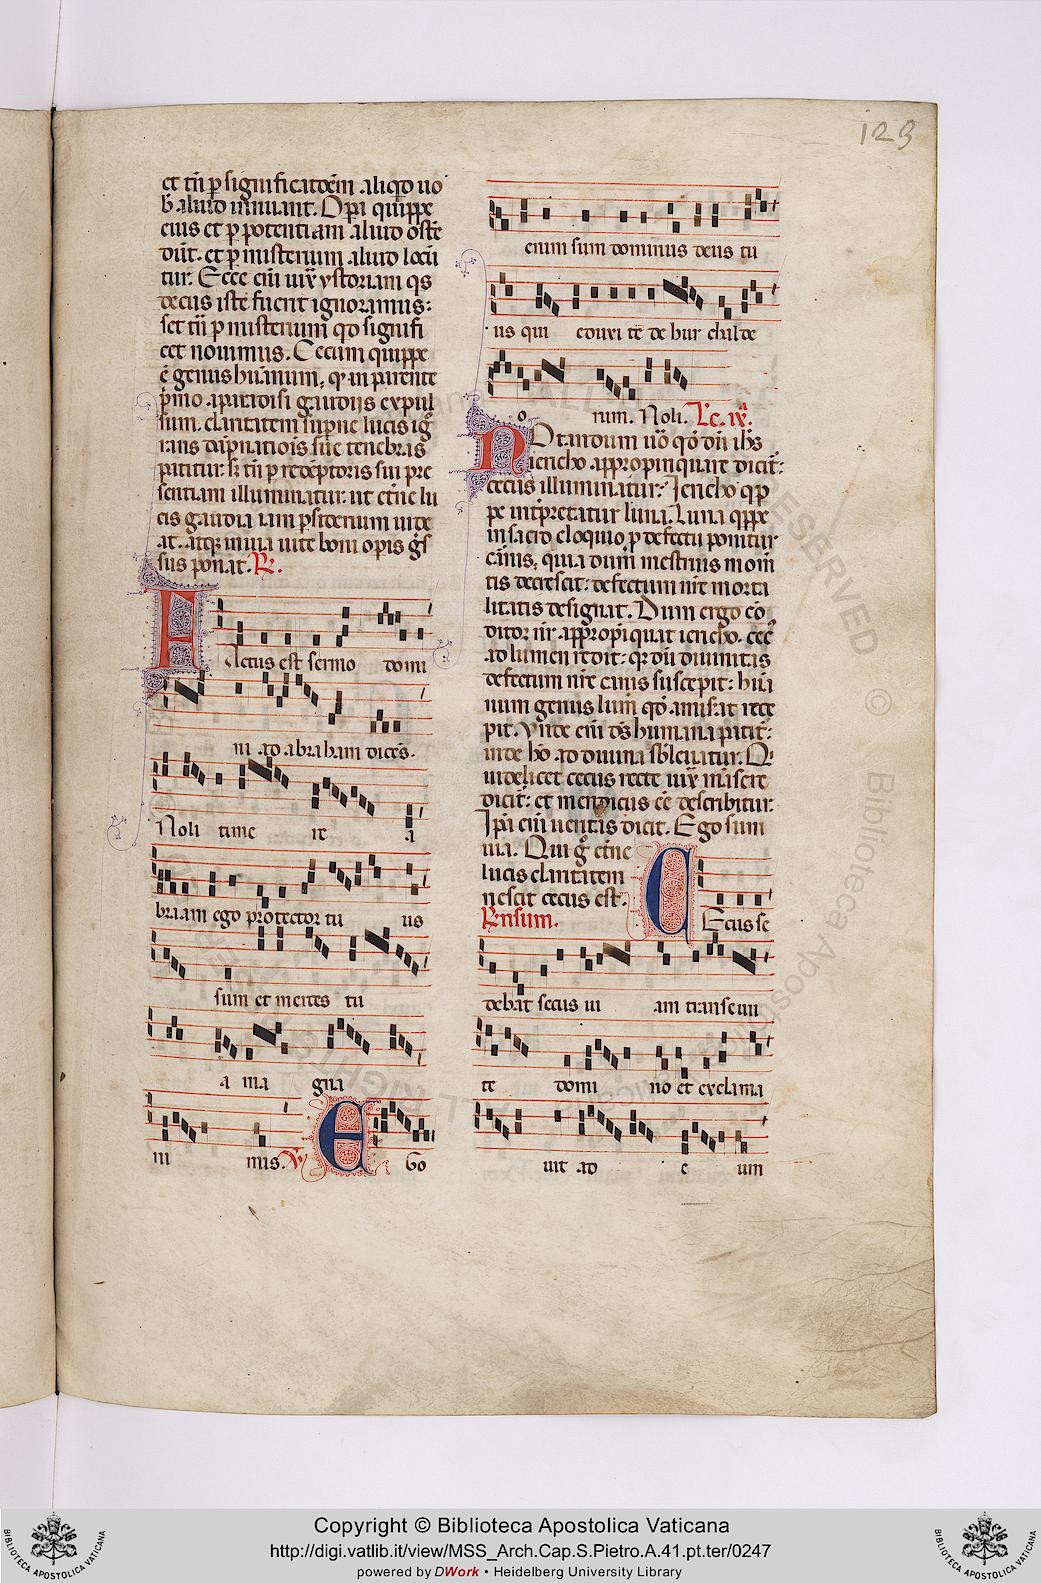 129
et tn̄ ꝑ significatōem aliqͥd uo
b̄ aliud innuant. Oꝑa quippe
eius et ꝑ potentiam aliud osten
dūt. et ꝑ misterium aliud locū
tur. Ecce eī uix ystoriam qͥs
cecus iste fuerit ignoramus:
set tn̄ ꝑ misterium qd̄ signifi
cet nouimus. Cecum quippe
ē genus humanum, qd̄ in parente
pͥmo a paradisi gaudijs expul
sum. claritatem suꝑne lucis ig̅
rans dāpnationis sue tenebras
patitur: sꝫ tn̄ ꝑ redēptoris sui pre
sentiam illuminatur: ut et̄ne lu
cis gaudia iam ꝑ desiderium uide
at. atqꝫ in uia uite boni oꝑis g̅s
sus ponat. R̷.
Actus est sermo domi
ni ad abraham dicēs.
Noli time re a
braam ego protector tu us
sum et merces tu
a ma gna
ni mis. V̷. Ego
enim sum dominus deus tu
us qui eduxi te de hur chalde
o rum. Noli. Lc̄. ix̄.
Notandum uō qd̄ dn̄ ih̄s
iericho appropinquare dicit̄:
cecus illuminatur: Iericho qͥp
pe int̄pretatur luna. Luna qͥppe
in sacro eloquio ꝑ defectu ponitur
carnis, quia dum menstruis momēn
tis decrescit: defectum nr̄e morta
litatis designat. Dum ergo cō
ditor nr̄ appropīquat iericho. cec̄
ad lumen redit: qꝫ dū diuinitas
defectum nr̄e carnis suscepit: huma
num genus lum̄ qd̄ amiserat rece
pit. Vnde enī ds̄ humana patit̄:
inde hō ad diuina sbleuatur. Qͥ
uidelicet cecus recte iuxta uiam sedere
dicit̄: et mendicus eē describitur.
Ip̄a enī ueritas dicit. Ego sum
uia. Qui g̊ et̄ne
lucis claritatem
nescit cecus est.
R̷nsum. Cecus se
debat secus ui am transeun
te domi no et exclama
uit ad e um
Copyright © Biblioteca Apostolica Vaticana
http://digi.vatlib.it/view/MSS_Arch.Cap.S.Pietro.A.41.pt.ter/0247
powered by DWork • Heidelberg University Library